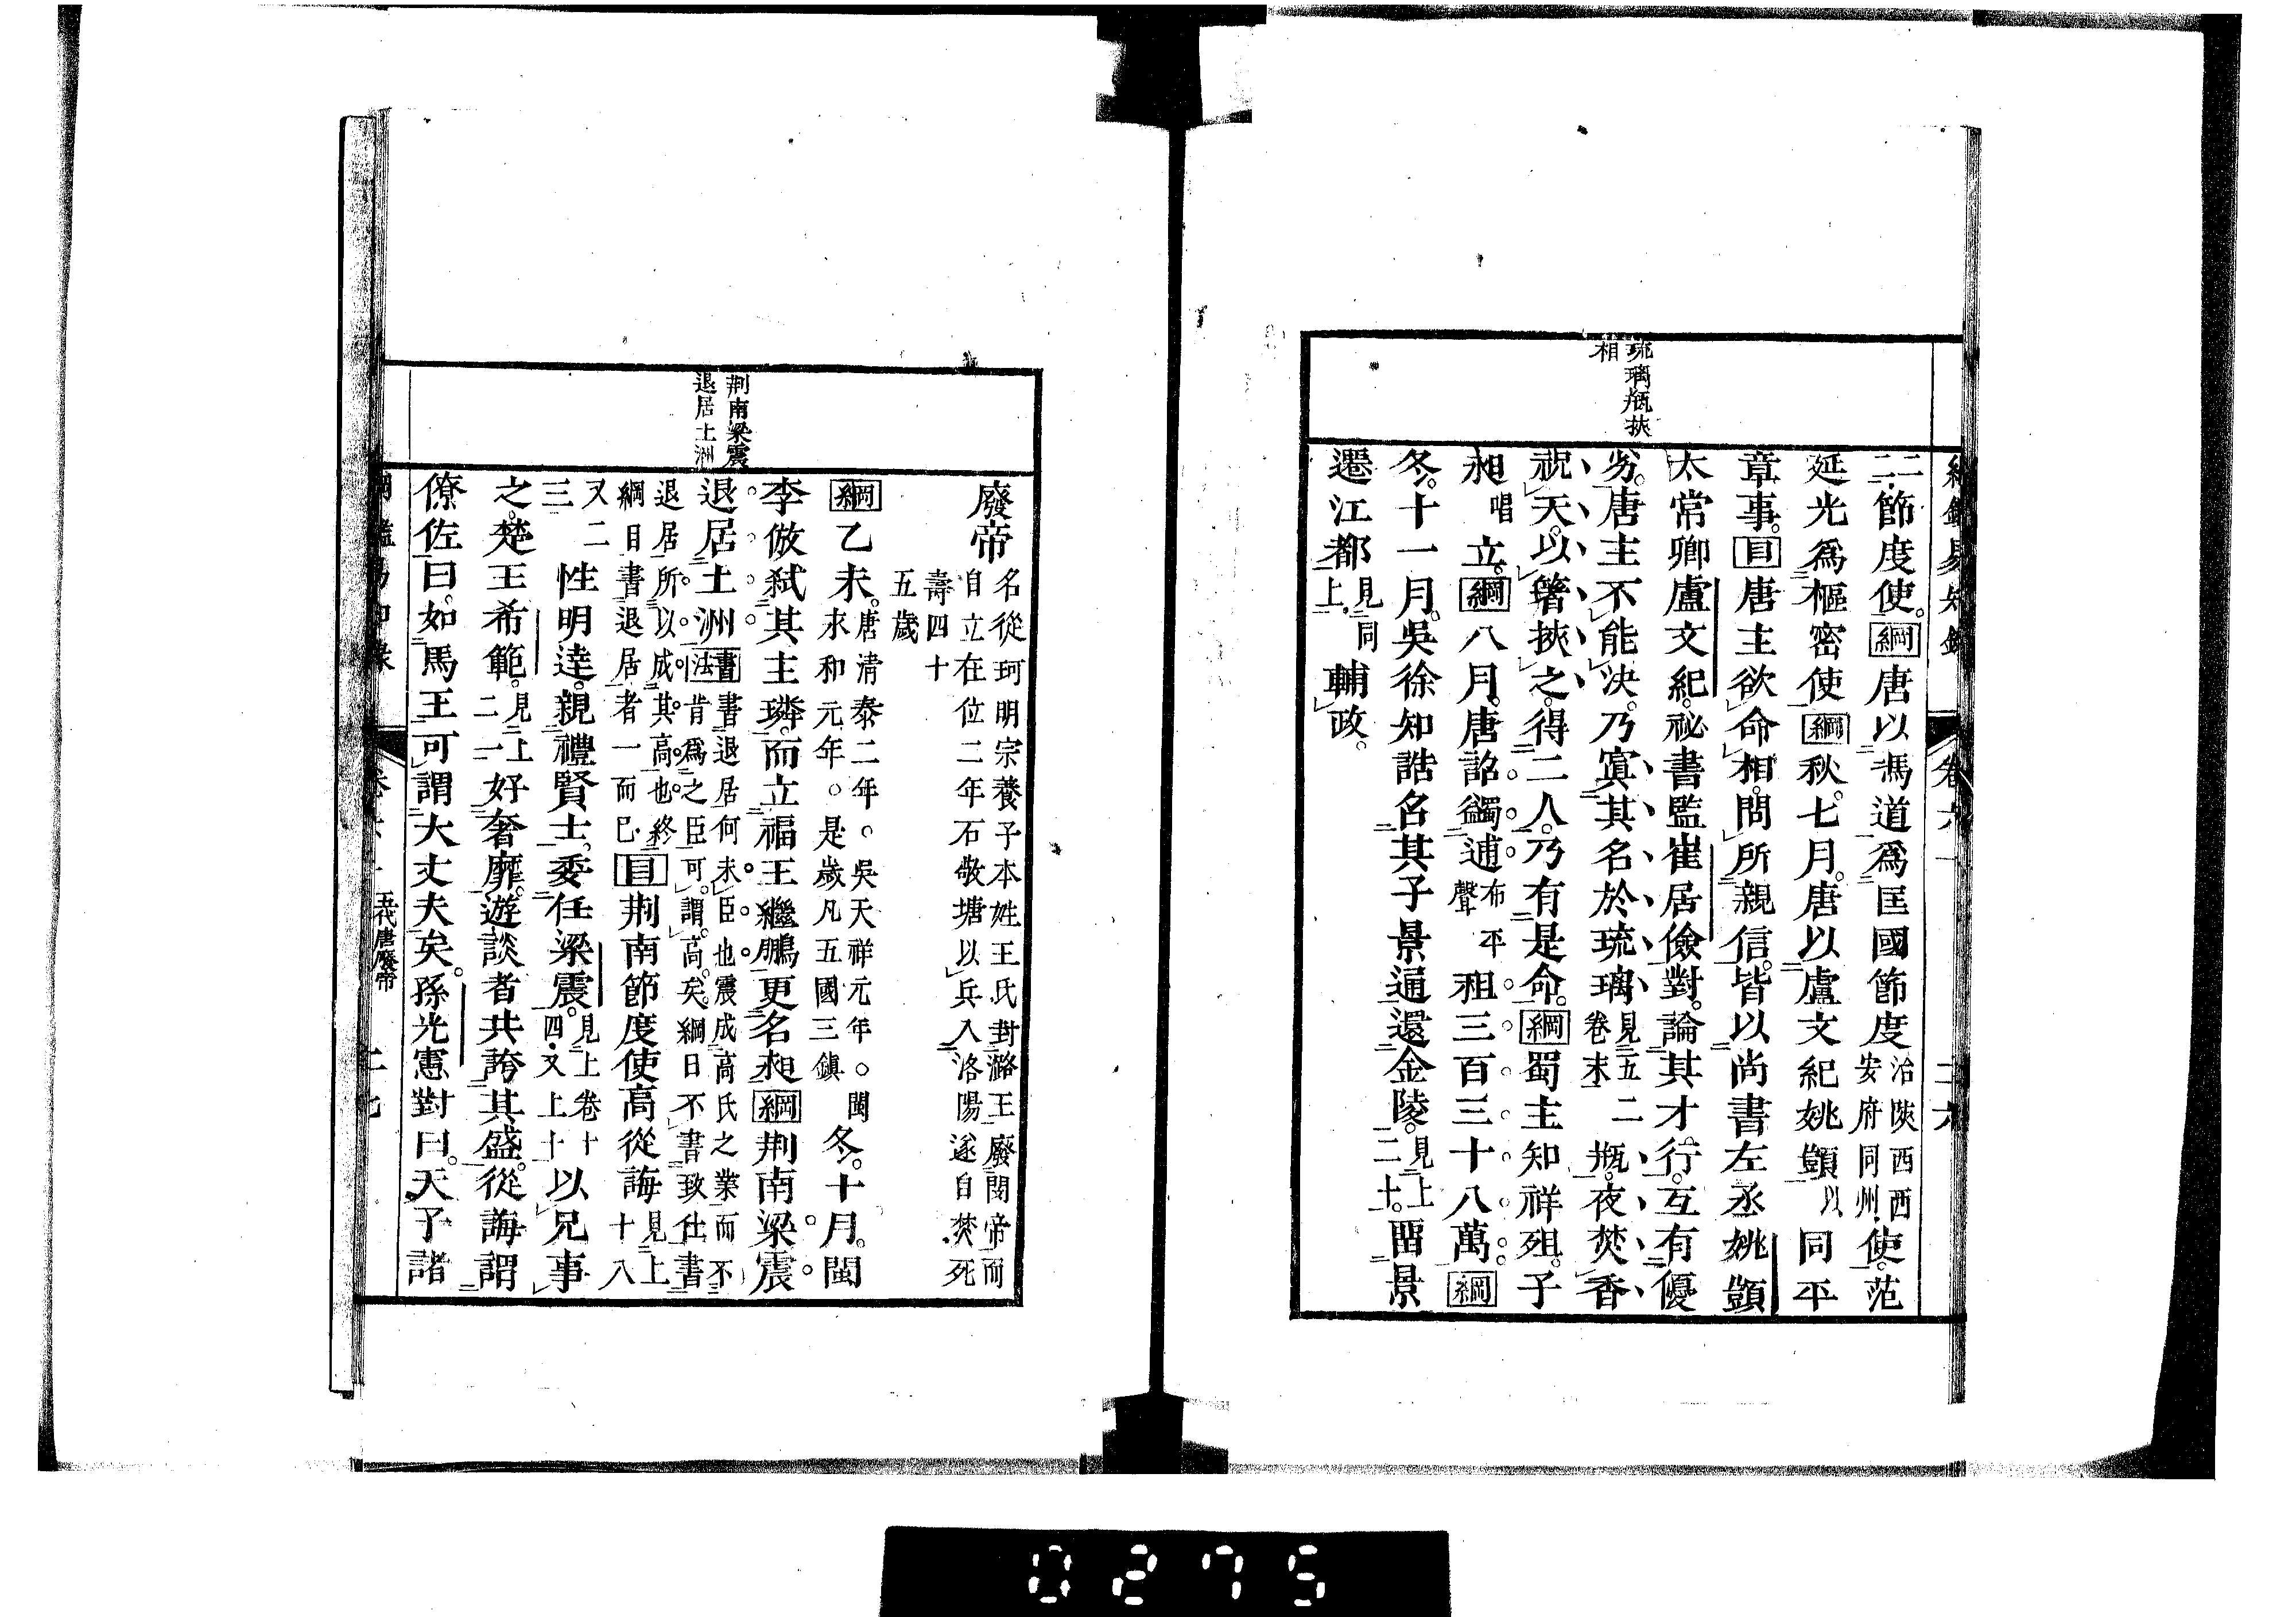 琉璃瓶挾
相
二二節度使。綱唐以馮道爲匡國節度治陝西西安府同州使。范
延光爲樞密使綱秋。七月。唐以盧文紀姚顗以同平
章事。目唐主欲命相。問所親信。皆以尚書左丞姚顗
太常卿盧文紀。祕書監崔居儉對。論其才行。互有優
劣。唐主不能決。乃寘其名於琉璃見五二卷末瓶。夜焚香
祝天。以箸挾之。得二人。乃有是命。綱蜀主知祥殂。子
昶唱立。綱八月。唐詔蠲逋布平聲租三百三十八萬綱
冬。十一月。吳徐知誥名其子景通還金陵。見上二十。畱景
遷江都見同上輔政。
荆南梁震
退居土洲
廢帝名從珂明宗養子本姓王氏封潞王廢閔帝而自立在位二年石敬塘以兵入洛陽遂自焚死
壽四十五歲
綱乙未。唐清泰二年。吳天祥元年。閩永和元年。是歲凡五國三鎮冬。十月。閩
李倣弒其主璘。而立福王繼鵬。更名昶綱荆南梁震
退居土洲書法書退居何未臣也震成高氏之業而不肯爲之臣可謂高矣。綱目不書致仕書
退居所以成其高也終綱目書退居者一而已目荆南節度使高從誨見上十八
又二三性明達。親禮賢士。委任梁震。見上卷十四又上十以兄事
之。楚王希範。見上二一好奢靡。遊談者共誇其盛。從誨謂
僚佐曰。如馬王可謂大丈夫矣。孫光憲對曰。天子諸
五代唐廢帝
0275